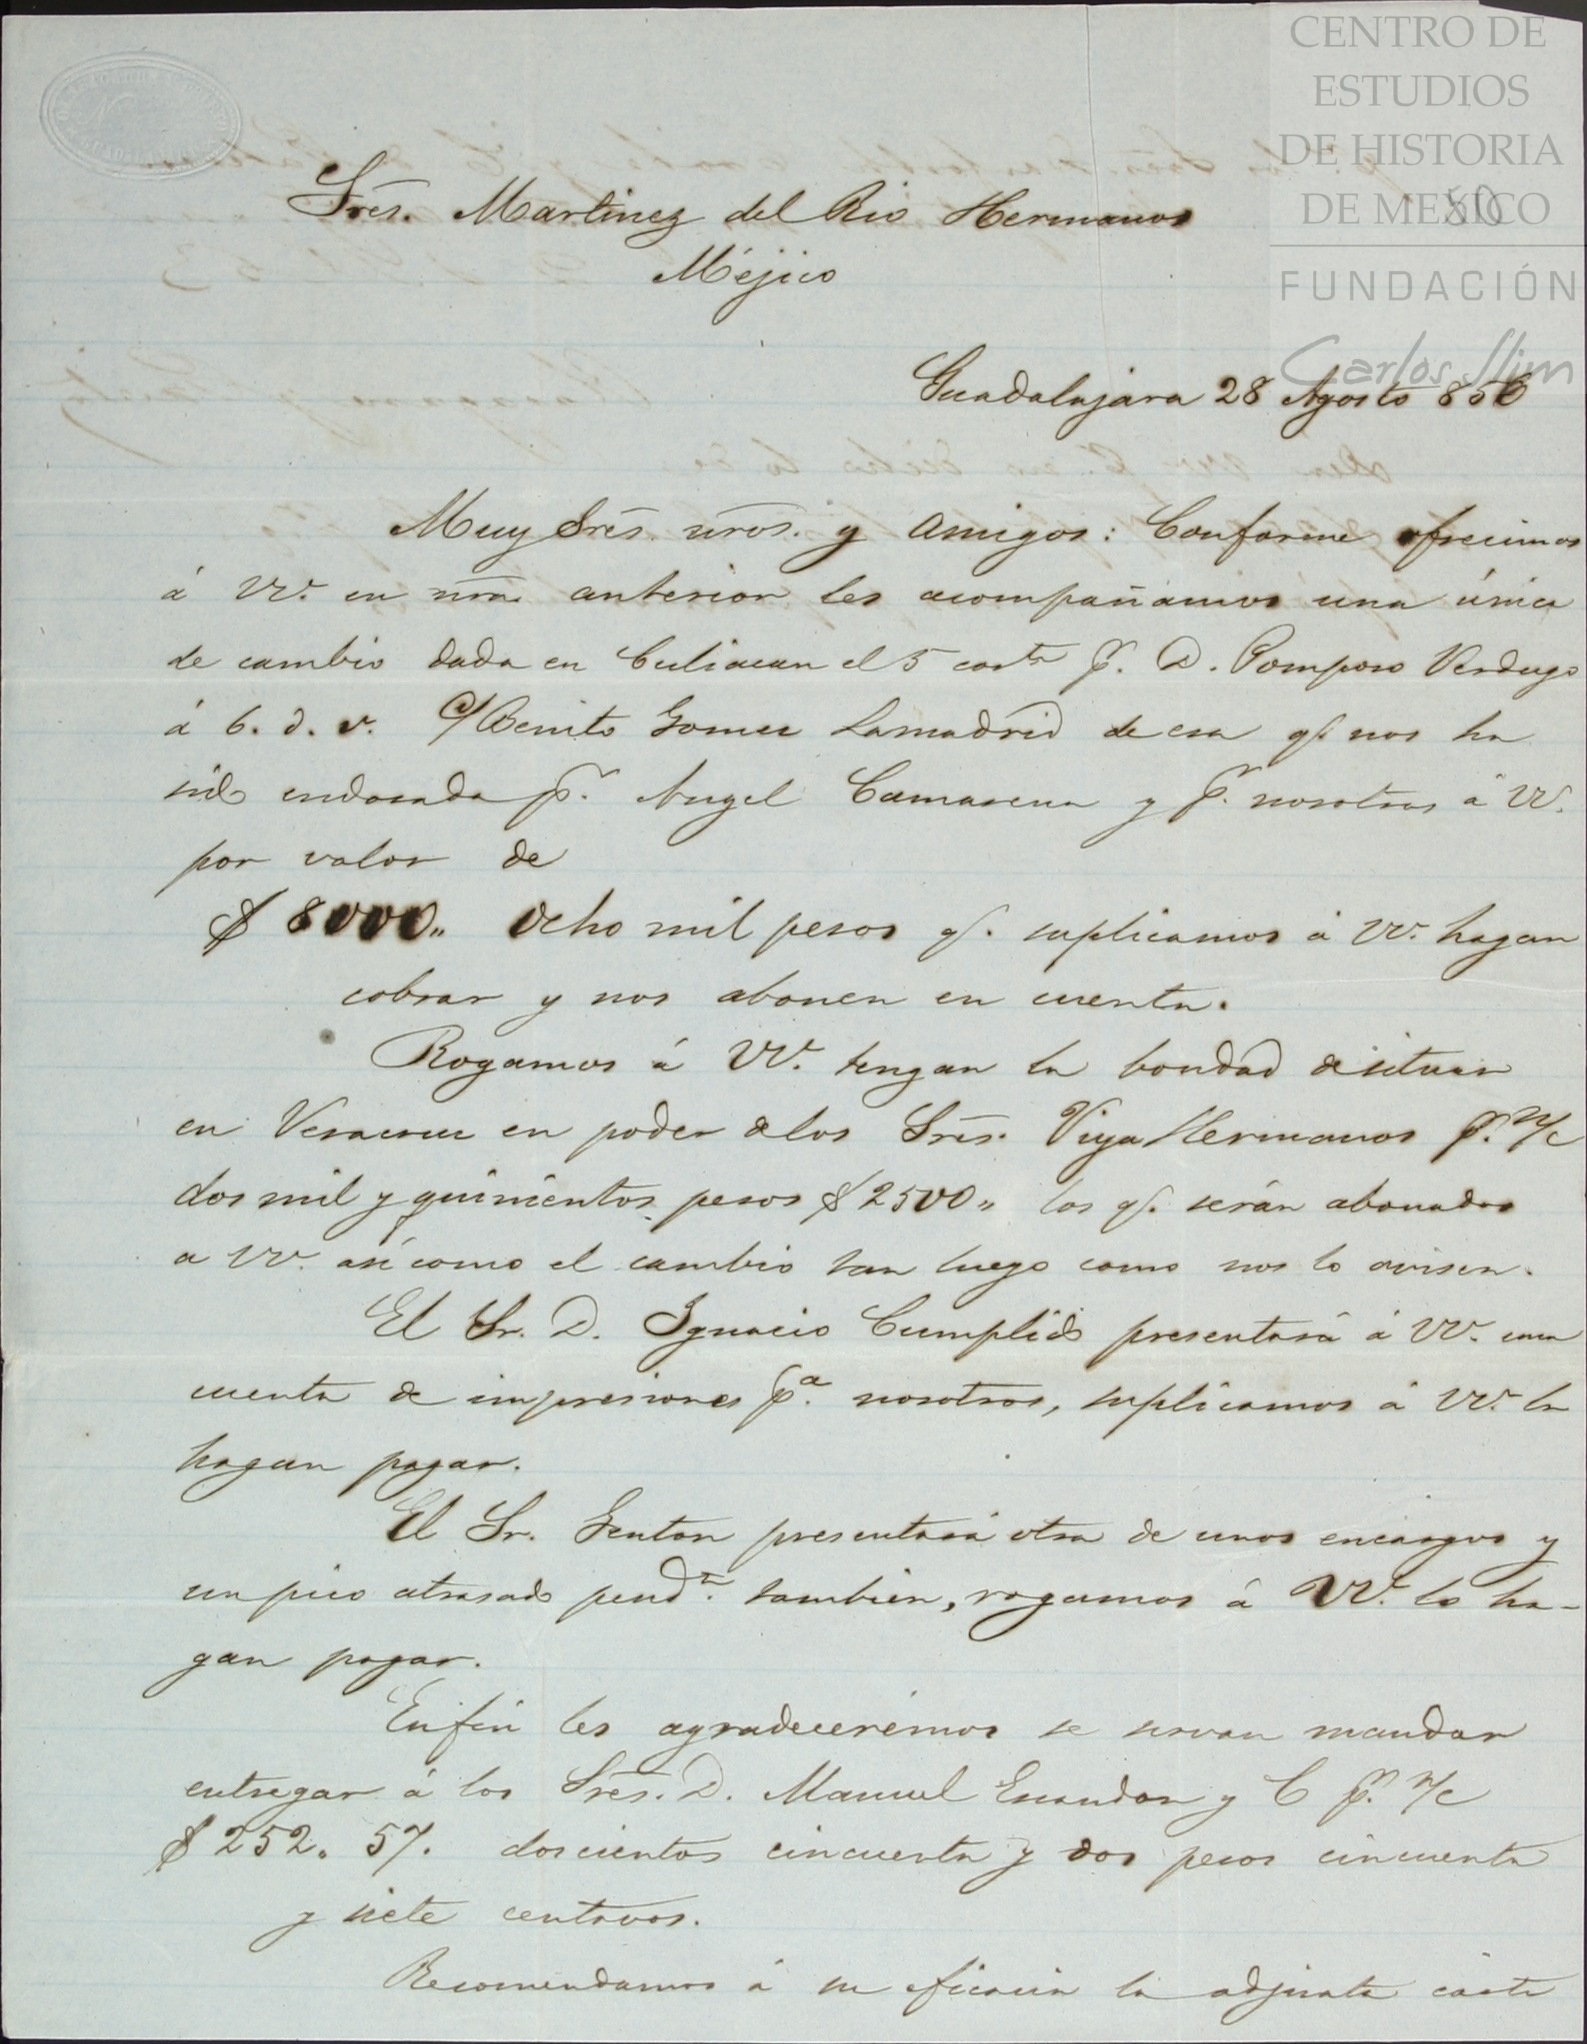 CENTRO DE
ESTUDIOS
DE HISTORIA
DE MEXICO
50
FUNDACIÓN
Carlos Slim
Sres. Martinez del Rio Hermanos
Méjico
Guadalajara 28 Agosto 856
Muy Sres. nros. y amigos: Conforme ofrecimos
á VV. en nra. anterior les acompañamos una única
de cambio dada en Culiacan el 5 corte p. D. Pomposo Verdugo
á 6. d. v. c/ Benito Gomez Lamadrid de esa q. nos ha
sido endosada p.r Angel Camarena y p.r nosotros á VV.
por valor de
$ 8000.. Ocho mil pesos q. suplicamos á VV. hagan
cobrar y nos abonen en cuenta.
Rogamos á VV. tengan la bondad de situar
en Veracruz en poder de los Sres. Viya Hermanos p. n/c
dos mil y quinientos pesos $ 2500.. los q. serán abonados
a VV. asi como el cambio tan luego como nos lo avisen.
El Sr. D. Ignacio Cumplido presentará á VV. una
cuenta de impresiones p.a nosotros, suplicamos á VV. la
hagan pagar.
El Sr. presentará otra de unos encargos y
un pico atrasado pend.te tambien, rogamos á VV. la ha-
gan pagar.
En fin les agradecerémos se sirvan mandar
entregar á los Sres. D. Manuel Escandon y C p. n/c
$ 252. 57. doscientos cincuenta y dos pesos cincuenta
y siete centavos.
Recomendamos á su eficacia la adjunta carta